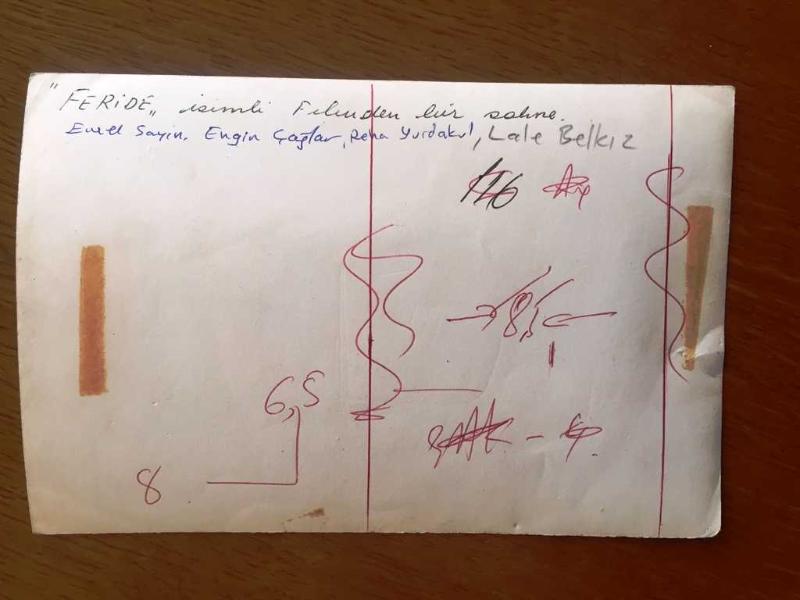 "FERİDE„ isimli Filmden bir sahne.
Emel Sayın, Engin Çağlar, Reha Yurdakul, Lale Belkız
116
8,5
6,5
8